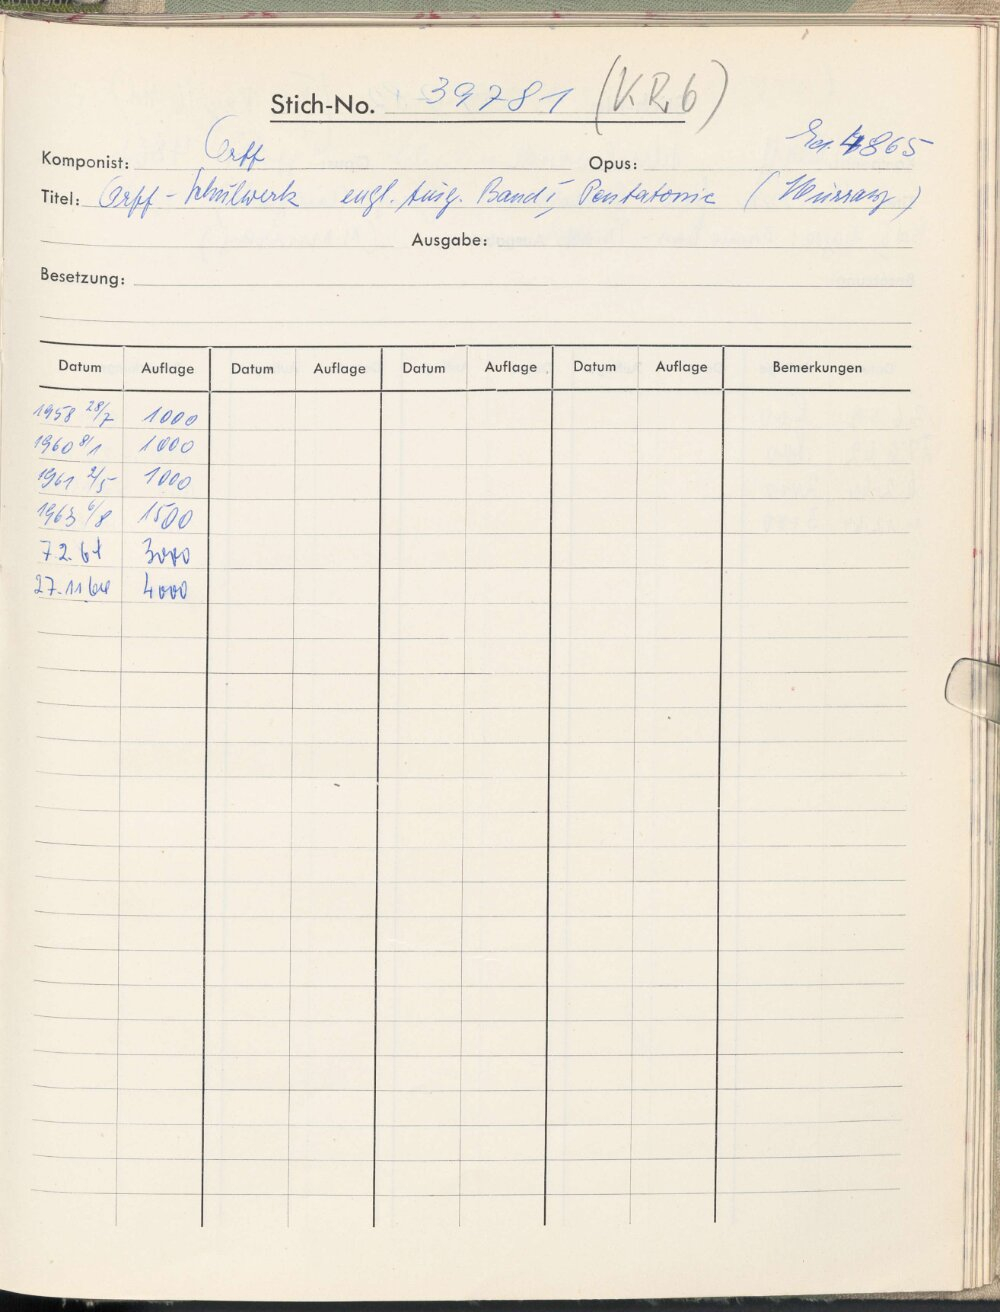 Stich-No. 39781 (KR6)
Komponist: Orff Opus: Ed. 4865
Titel: Orff-Schulwerk engl. Ausg. Band I, Pentatonic (Murray)
Ausgabe:
Besetzung:
Datum Auflage Datum Auflage Datum Auflage Datum Auflage Bemerkungen
1958 28/7 1000
1960 8/1 1000
1961 2/5 1000
1963 6/8 1500
7.2.64 3000
27.11.64 4000